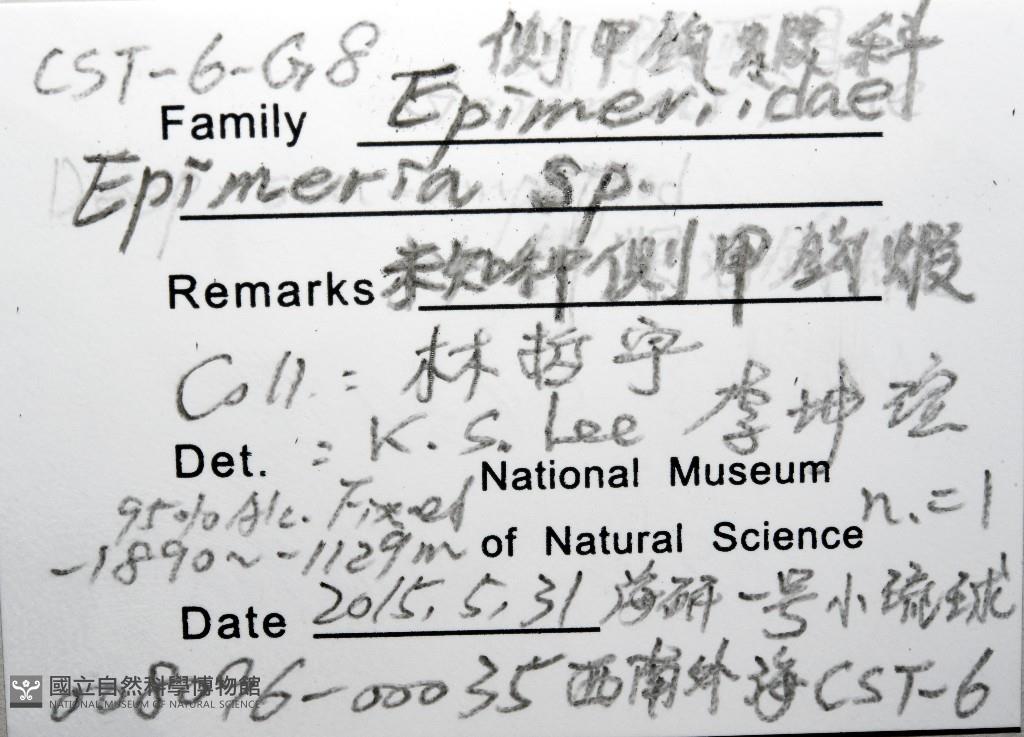 CST-6-G8 側甲鉤蝦科
Family Epimeriidae
Epimeria sp.
Remarks 未知種側甲鉤蝦
Coll. : 林哲宇
Det. : K. S. Lee 李坤瑄
National Museum
95% Alc. Fixed
n.=1
-1890~-1129m of Natural Science
Date 2015.5.31 海研一号小琉球
008796-00035 西南外海CST-6
國立自然科學博物館
NATIONAL MUSEUM OF NATURAL SCIENCE